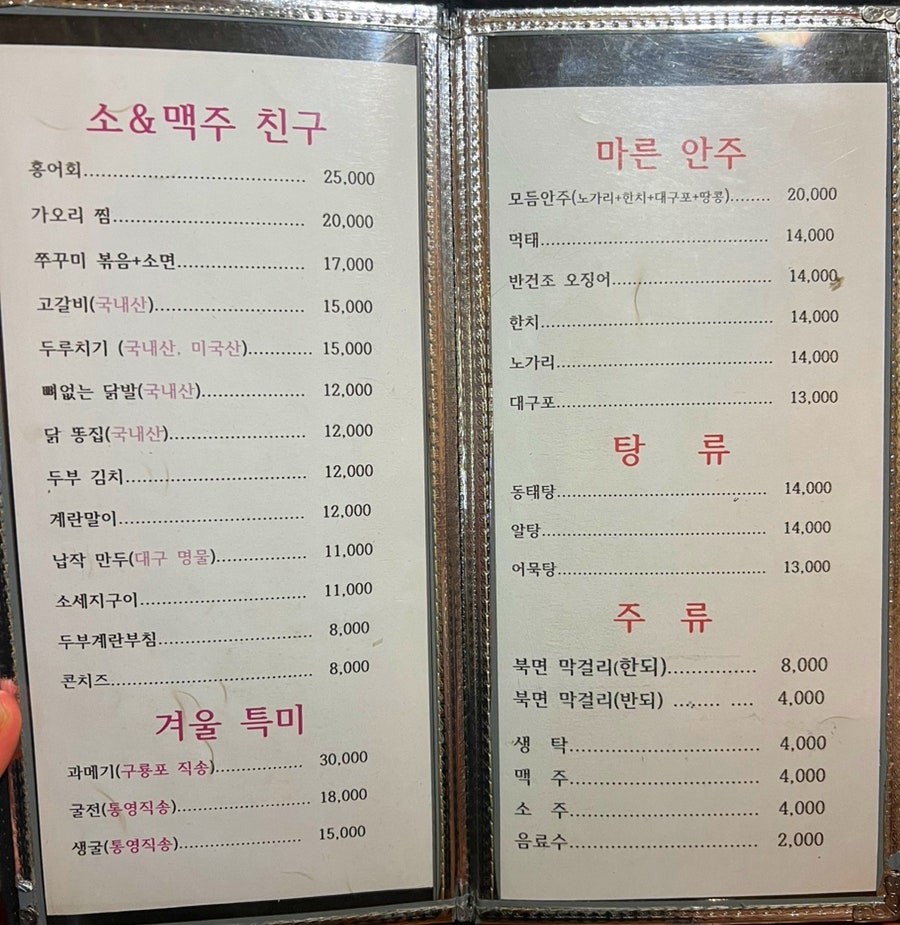 소&맥주 친구
홍어회.................................... 25,000
가오리 찜............................... 20,000
쭈꾸미 볶음+소면.................... 17,000
고갈비(국내산)........................ 15,000
두루치기 (국내산, 미국산).......... 15,000
뼈없는 닭발(국내산)................. 12,000
닭 똥집(국내산)...................... 12,000
두부 김치............................... 12,000
계란말이................................ 12,000
납작 만두(대구 명물)............... 11,000
소세지구이............................ 11,000
두부계란부침......................... 8,000
콘치즈.................................. 8,000
겨울 특미
과메기(구룡포 직송)................ 30,000
굴전(통영직송)....................... 18,000
생굴(통영직송)....................... 15,000
마른 안주
모듬안주(노가리+한치+대구포+땅콩)....... 20,000
먹태..................................... 14,000
반건조 오징어........................ 14,000
한치..................................... 14,000
노가리.................................. 14,000
대구포.................................. 13,000
탕 류
동태탕.................................. 14,000
알탕..................................... 14,000
어묵탕.................................. 13,000
주 류
북면 막걸리(한되)................ 8,000
북면 막걸리(반되) ........ .... 4,000
생 탁................................ 4,000
맥 주................................ 4,000
소 주................................ 4,000
음료수................................ 2,000